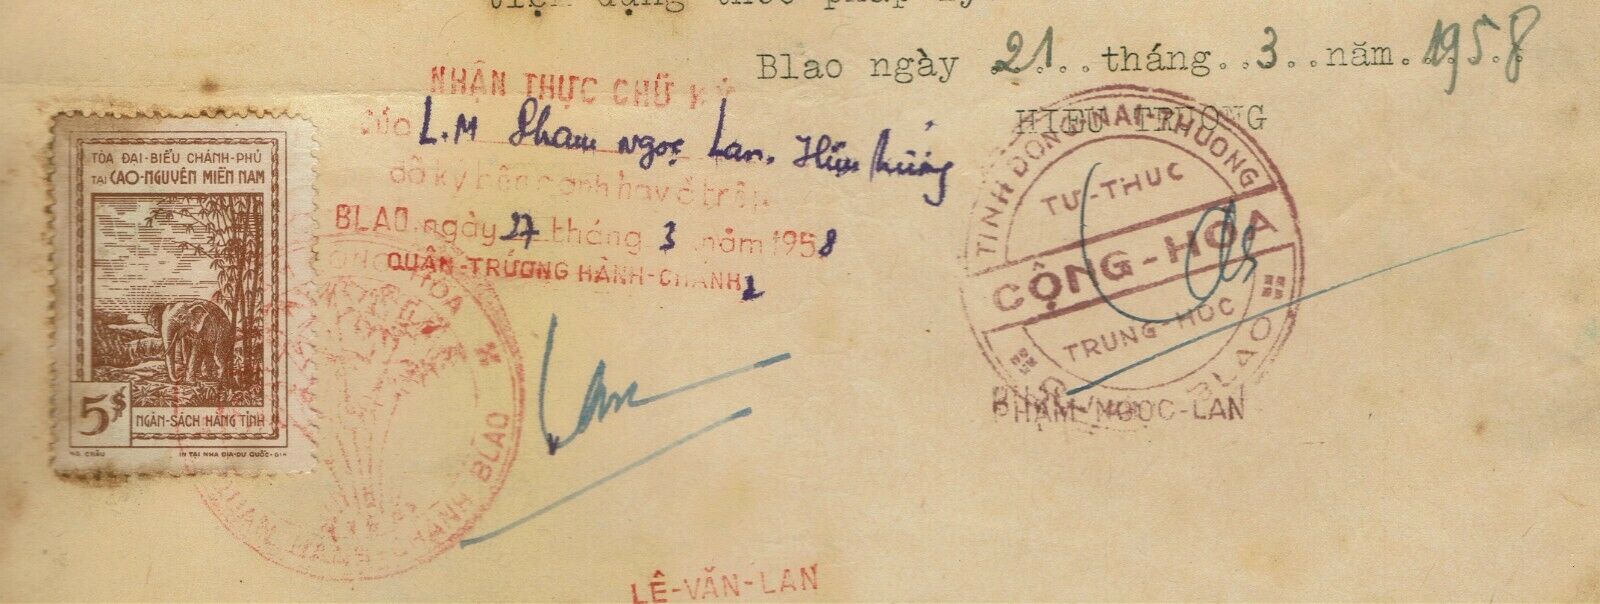 Blao ngày 21 tháng 3 năm 1958
HIỆU TRƯỞNG
NHẬN THỰC CHỮ KÝ
của L.M Pham ngọc Lan. Hiệu trưởng
đã ký bên cạnh hay ở trên
BLAO ngày 27 tháng 3 năm 1958
QUẬN-TRƯỞNG HÀNH-CHÁNH
TÒA ĐẠI-BIỂU CHÁNH-PHỦ
TẠI CAO-NGUYÊN MIỀN NAM
5$
NGÂN-SÁCH HÀNG TỈNH
IN TẠI NHA ĐỊA-DƯ QUỐC-GIA
TỈNH ĐỒNG-NAI-THƯỢNG
TƯ-THỤC
CỘNG-HÒA
TRUNG-HỌC
BLAO
PHẠM-NGỌC-LAN
HÀNH-CHÁNH BLAO
LÊ-VĂN-LAN